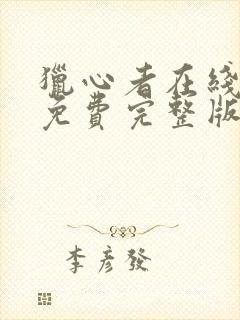 獵心者在綫
免費完整版
李彥發